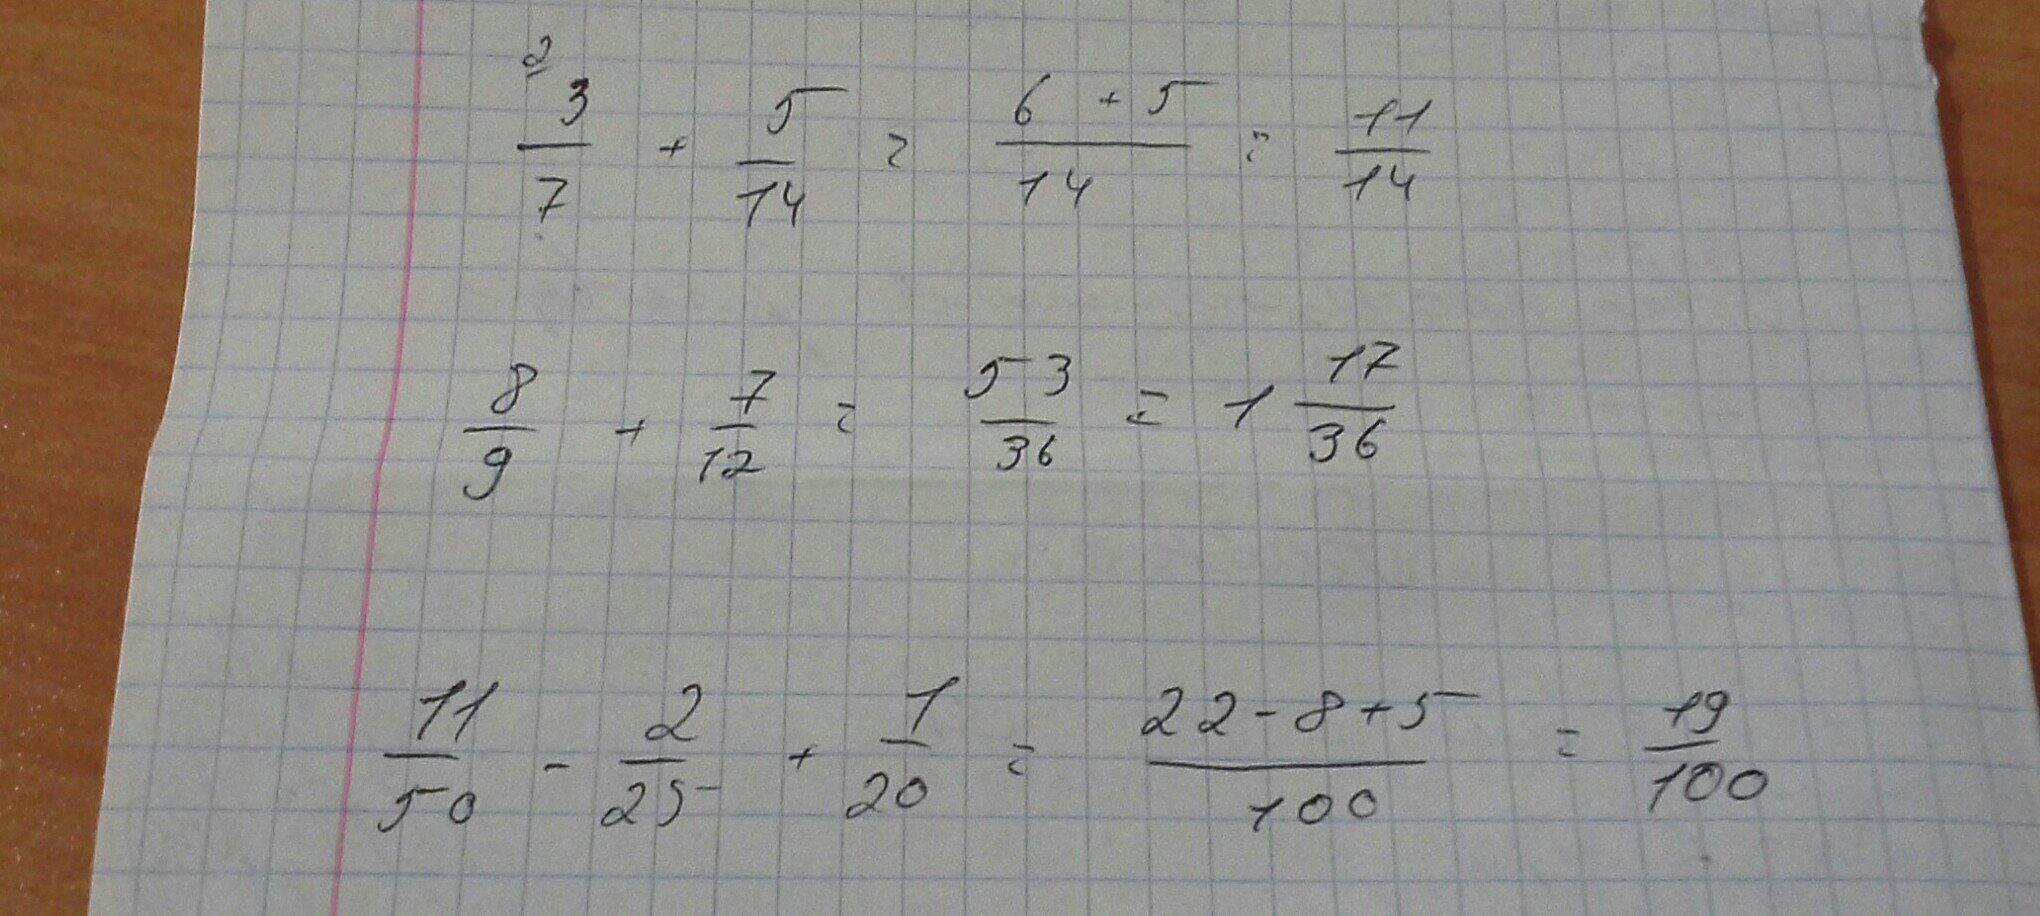 2
3/7 + 5/14 = 6 + 5/14 = 11/14
8/9 + 7/12 = 53/36 = 1 17/36
11/50 - 2/25 + 1/20 = 22 - 8 + 5/100 = 19/100